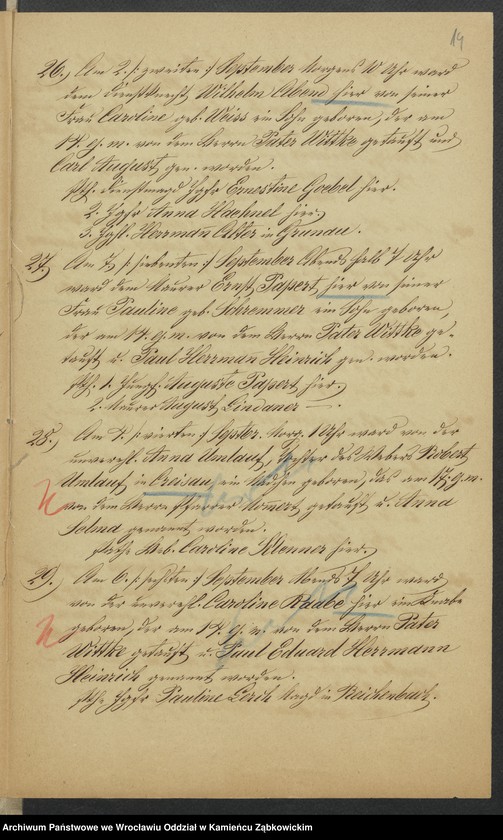 19
26.) Am 2. /: zweiten :/ September Morgens 10 Uhr ward
dem Dienstknecht Wilhelm hier von seiner
Frau Caroline geb. Weiss ein Sohn geboren, der am
17. ej. m. von dem Herrn Pater Wittke getauft und
Carl August, gen. worden.
Pth. Dienstmagd Jgfr Ernestine Goebel hier.
2. Jgfr Anna Haehnel hier.
3. Jggl. Herrmann Alter in Grunau.
27.) Am 7. /: siebenten :/ September Abends halb 7 Uhr
ward dem Maurer Ernst Papert, hier von seiner
Frau Pauline geb. Schremmer ein Sohn geboren,
der am 17. ej. m. von dem Herrn Pater Wittke ge-
tauft u. Paul Herrman Heinrich gen. worden.
Pth. 1. Jungf. Auguste Papert, hier.
2. Maurer August Lindauer —.
28.) Am 4. /: vierten :/ Septbr. Morg. 1 Uhr ward von der
unverehl. Anna Umlauf, Tochter des Webers Robert
Umlauf in Creisau, ein Mädchen geboren, das am 17. ej. m.
von dem Herrn Pfarrer getauft u. Anna
Selma genannt worden.
Pathe Caroline Klenner hier.
29.) Am 6. /: sechsten :/ September Abends 7 Uhr ward
von der unverehl. Caroline Raabe hier ein Knabe
geboren, der am 17. ej. m. von dem Herrn Pater
Wittke getauft u. Paul Eduard Herrmann
Heinrich genannt worden.
Pthe Jgfr Pauline Magd in Reichenbach.
Archiwum Państwowe we Wrocławiu Oddział w Kamieńcu Ząbkowickim